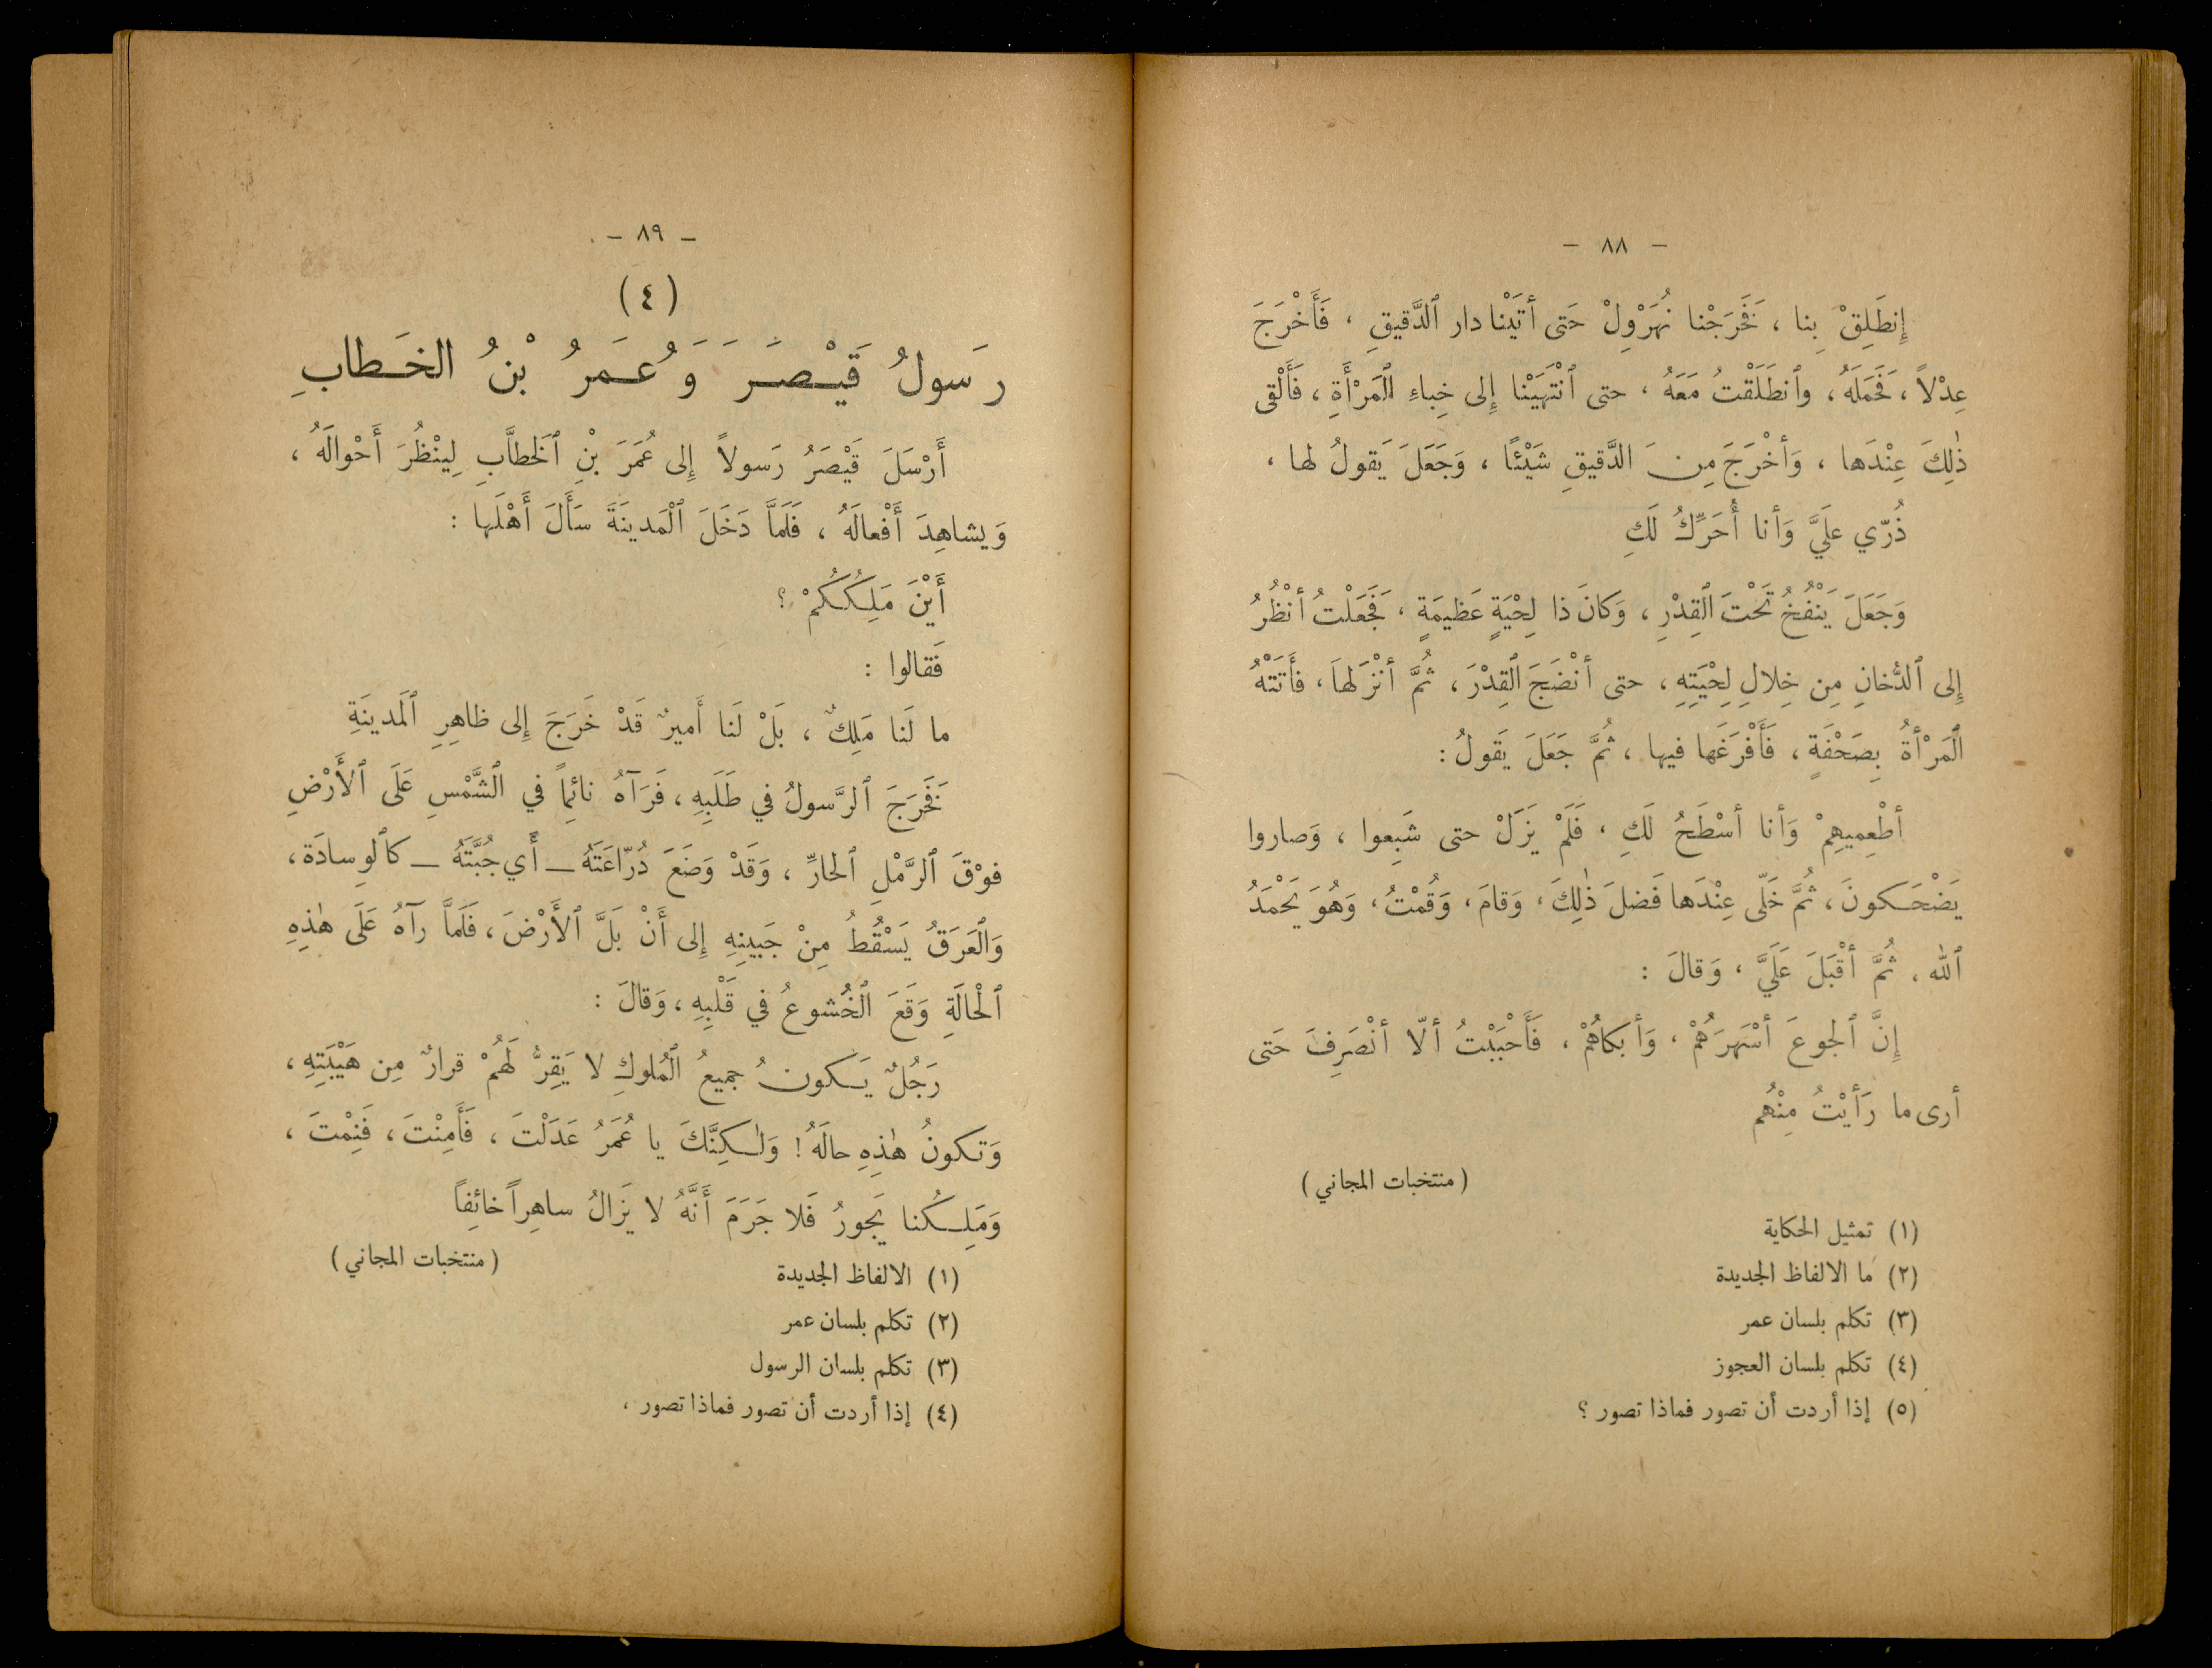 - ٨٨ -
إِنطَلِقْ بِنا ، فَخَرَجْنا نُهَرْوِلْ حَتى أتَيْنا دار ٱلدَّقيقِ ، فَأَخْرَجَ
عِدْلاً ، فَحَمَلَهُ ، وٱنطَلَقْتُ مَعَهُ ، حتى ٱنْتَهَيْنا إِلى خِباءِ ٱلْمَرْأَةِ ، فَأَلْقى
ذٰلِكَ عِنْدَها ، وَأخْرَجَ مِنَ الدَّقيقِ شَيْئًا ، وَجَعَلَ يَقولُ لها ،
ذُرّي علَيَّ وَأنا أُحَرِّكُ لَكِ
وَجَعَلَ يَنْفُخُ تَحْتَ ٱلْقِدْرِ ، وَكانَ ذا لِحْيَةٍ عَظيمَةٍ ، فَجَعَلْتُ أنْظُرُ
إِلى ٱلدُّخانِ مِن خِلالِ لِحْيَتِهِ ، حتى أنْضَجَ ٱلْقِدْرَ ، ثُمَّ أنْزَلَها ، فأَتَتْهُ
ٱلْمَرْأةُ بِصَحْفَةٍ ، فَأَفْرَغَها فيها ، ثُمَّ جَعَلَ يَقولُ :
أطْعِميهِمْ وَأنا أسْطَحُ لَكِ ، فَلَمْ يَزَلْ حتى شَبِعوا ، وَصاروا
يَضْحَكونَ ، ثُمَّ خَلّى عِنْدَها فَضلَ ذٰلِكَ ، وَقامَ ، وَقُمْتُ ، وَهُوَ يَحْمَدُ
ٱلله ، ثُمَّ أقْبَلَ عَلَيَّ ، وَقالَ :
إِنَّ ٱلجوعَ أسْهَرَهُمْ ، وَأبكاهُمْ ، فَأَحْبَبْتُ ألّا أنْصَرِفَ حَتى
أرى ما رَأيْتُ مِنْهُم
( منتخبات المجاني )
(١) تمثيل الحكاية
(٢) ما الالفاظ الجديدة
(٣) تكلم بلسان عمر
(٤) تكلم بلسان العجوز
(٥) إذا أردت أن تصور فماذا تصور ؟
- ٨٩ -
(٤)
رَسولُ قَيْصَرَ وَعُمَرُ بْنُ الخَطابِ
أَرْسَلَ قَيْصَرُ رَسولاً إِلى عُمَرَ بْنِ ٱلخَطَّابِ لِيَنْظُرَ أَحْوالَهُ ،
وَيشاهِدَ أَفْعالَهُ ، فَلَمَّا دَخَلَ ٱلْمَدينَةَ سَأَلَ أَهْلَها :
أَيْنَ مَلِكُكُمْ ؟
فَقالوا :
ما لَنا مَلِكٌ ، بَلْ لَنا أَميرٌ قَدْ خَرَجَ إِلى ظاهِرِ ٱلَمدينَةِ
فَخَرَجَ ٱلرَّسولُ في طَلَبِهِ ، فَرَآهُ نائِماً في ٱلشَّمْسِ عَلَى ٱلأَرْضِ
فوْقَ ٱلرَّمْلِ ٱلحارِّ ، وَقَدْ وَضَعَ دُرّاعَتَهُ — أَي جُبَّتَهُ — كٱلوِسادَة ،
وَٱلْعَرَقُ يَسْقُطُ مِنْ جَبينِهِ إِلى أَنْ بَلَّ ٱلأَرْضَ ، فَلَمَّا رآهُ عَلَى هٰذِهِ
ٱلْحالَةِ وَقَعَ ٱلْخُشوعُ في قَلْبِهِ ، وَقالَ :
رَجُلٌ يَكونُ جميعُ ٱلْمُلوكِ لا يَقِرُّ لَهُمْ قرارٌ مِن هَيْبَتِهِ ،
وَتكونُ هٰذِهِ حالَهُ ! وَلٰكِنَّكَ يا عُمَرُ عَدَلْتَ ، فَأَمِنْتَ ، فَنِمْتَ ،
وَمَلِكُنا يَجورُ فَلا جَرَمَ أَنَّهُ لا يَزالُ ساهِراً خائِفاً
( منتخبات المجاني )
(١) الالفاظ الجديدة
(٢) تكلم بلسان عمر
(٣) تكلم بلسان الرسول
(٤) إذا أردت أن تصور فماذا تصور ،